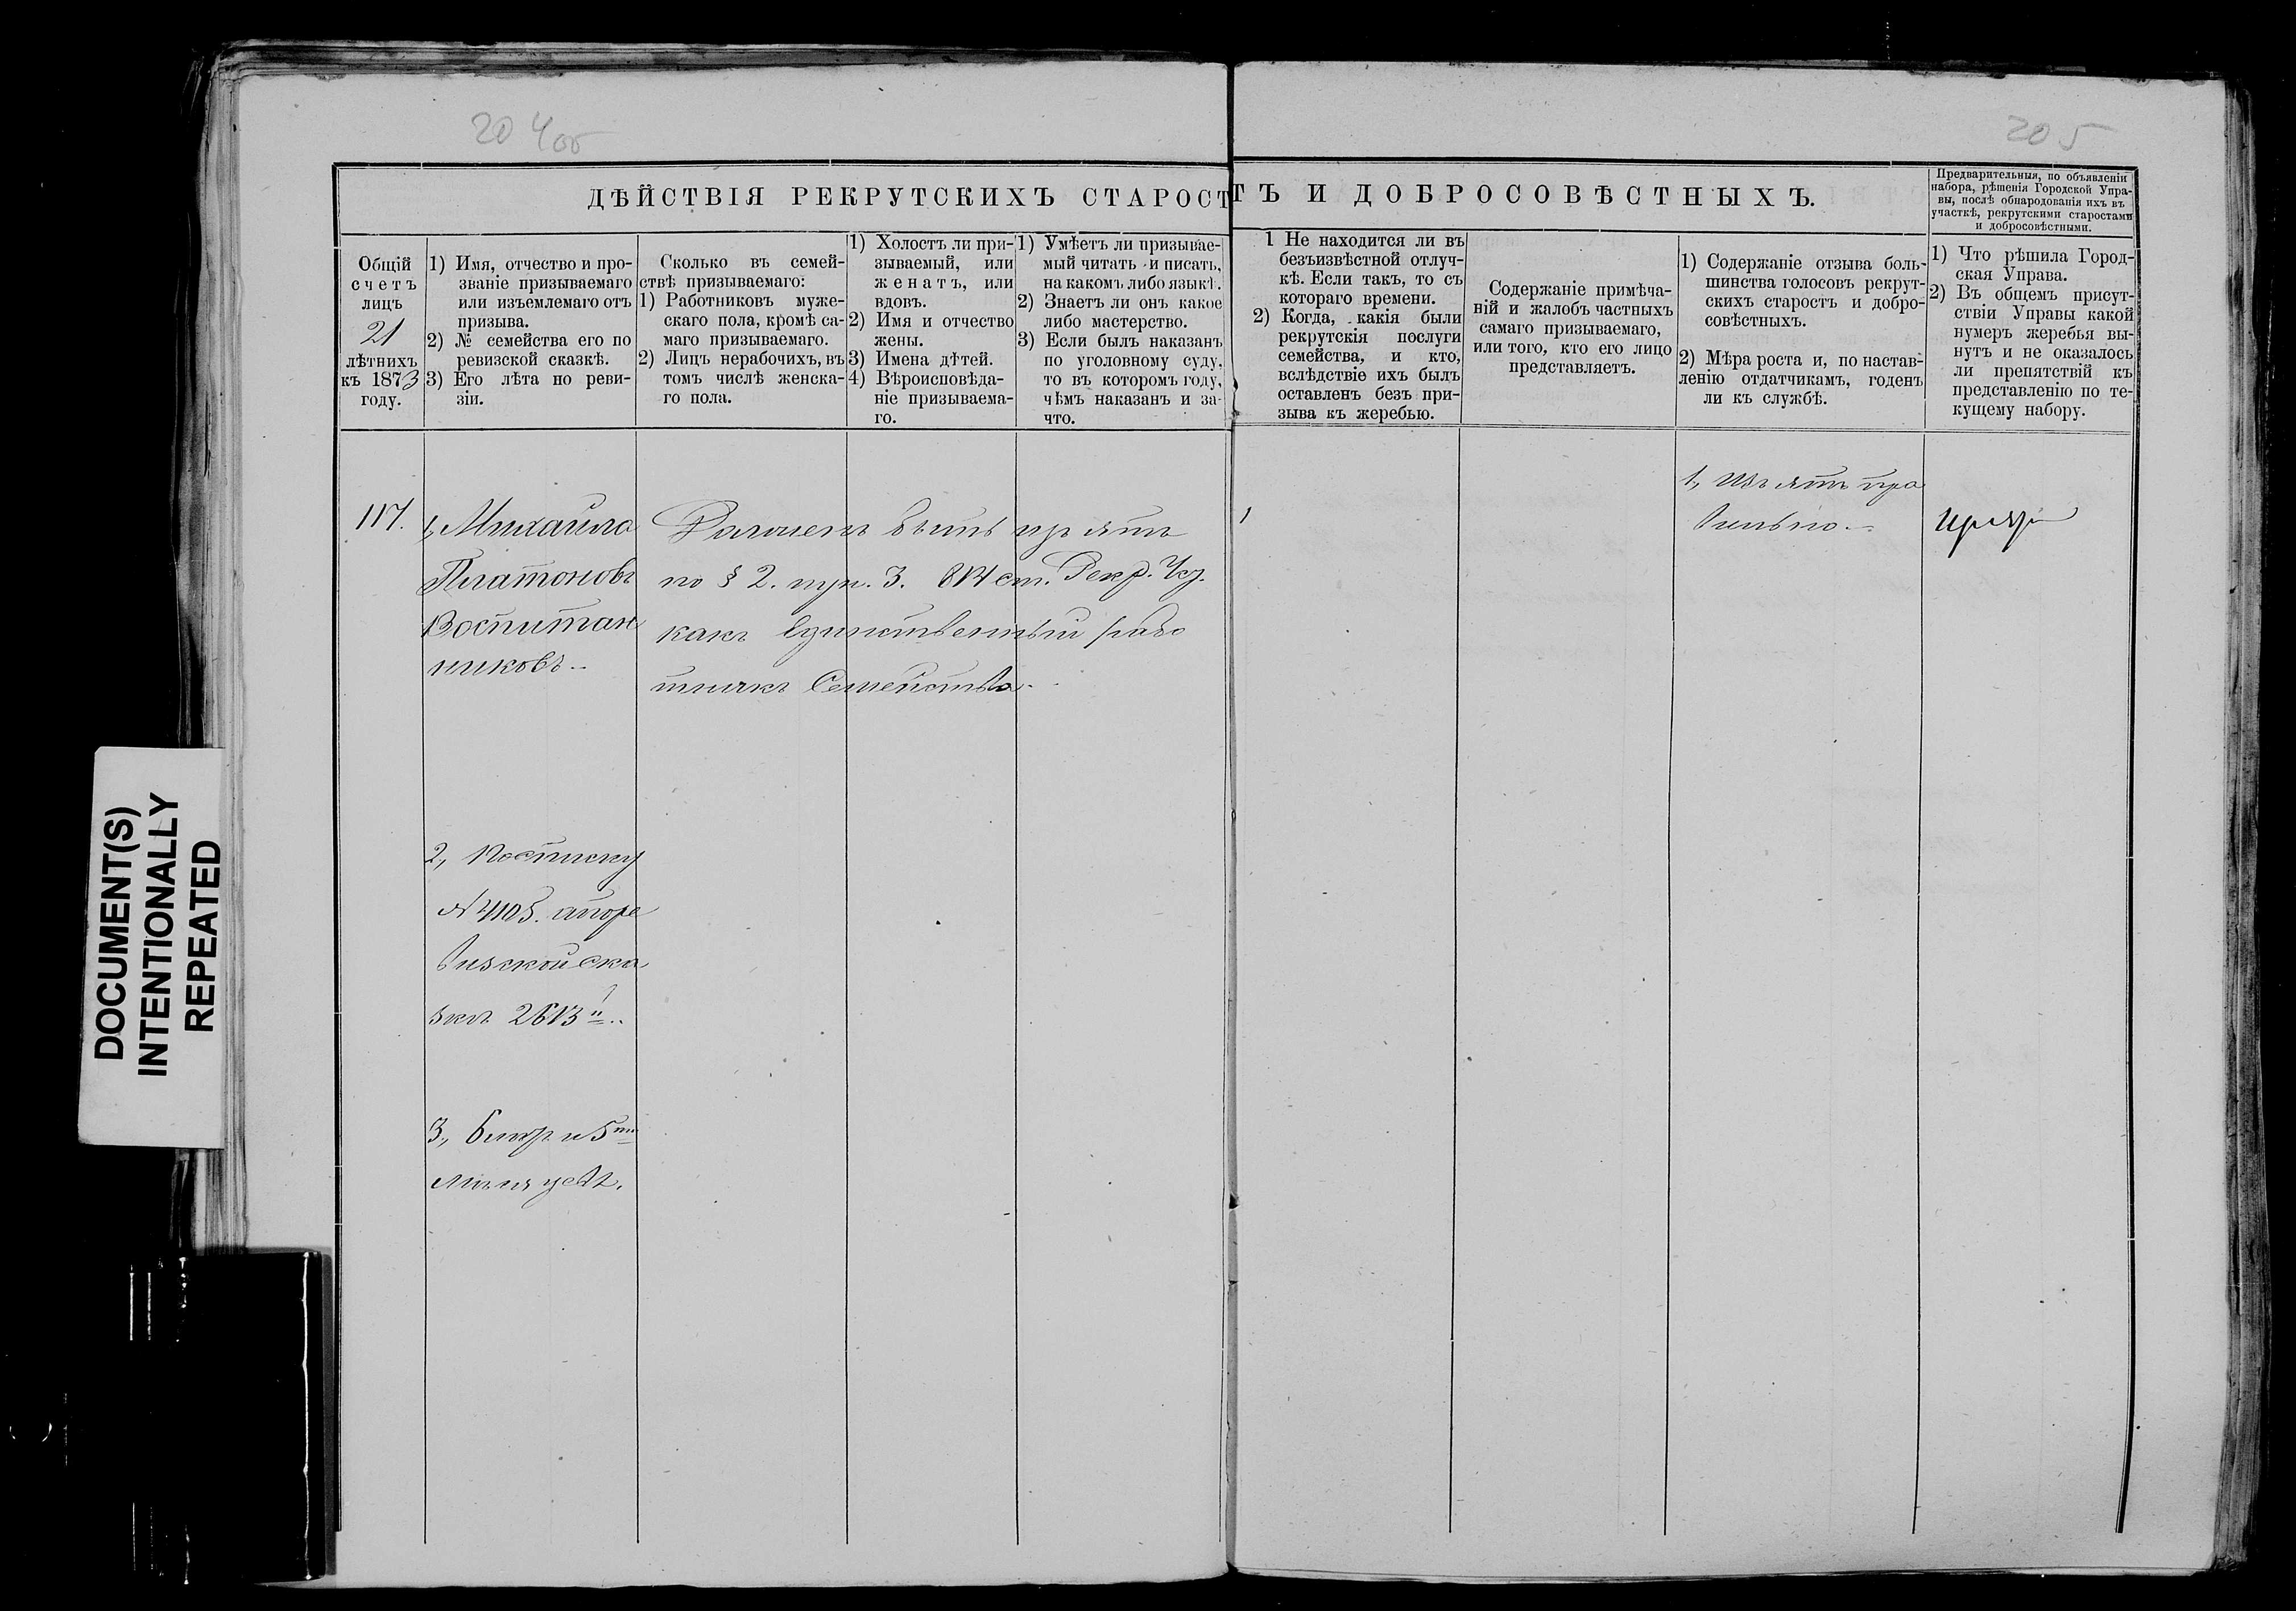 204об
205
ДѢЙСТВІЯ РЕКРУТСКИХЪ СТАРОСТЪ И ДОБРОСОВѢСТНЫХЪ.
Предварительныя, по объявленіи
набора, рѣшенія Городской Упра-
вы, послѣ обнародованія ихъ въ
участкѣ, рекрутскими старостами
и добросовѣстными.
Общій
счетъ
лицъ
21
лѣтнихъ
къ 1873
году.
1) Имя, отчество и про-
званіе призываемаго
или изъемлемаго отъ
призыва.
2) № семейства его по
ревизской сказкѣ.
3) Его лѣта по реви-
зіи.
Сколько въ семей-
ствѣ призываемаго:
1) Работниковъ муже-
скаго пола, кромѣ са-
маго призываемаго.
2) Лицъ нерабочихъ, въ
томъ числѣ женска-
го пола.
1) Холостъ ли при-
зываемый, или
женатъ, или
вдовъ.
2) Имя и отчество
жены.
3) Имена дѣтей.
4) Вѣроисповѣда-
ніе призываема-
го.
1) Умѣетъ ли призывае-
мый читать и писать,
на какомъ либо языкѣ.
2) Знаетъ ли онъ какое
либо мастерство.
3) Если былъ наказанъ
по уголовному суду,
то въ которомъ году,
чѣмъ наказанъ и за-
что.
1 Не находится ли въ
безъизвѣстной отлуч-
кѣ. Если такъ, то съ
котораго времени.
2) Когда, какія были
рекрутскія послуги
семейства, и кто,
вслѣдствіе ихъ былъ
оставленъ безъ при-
зыва къ жеребью.
Содержаніе примѣча-
ній и жалобъ частныхъ
самаго призываемаго,
или того, кто его лицо
представляетъ.
1) Содержаніе отзыва боль-
шинства голосовъ рекрут-
скихъ старостъ и добро-
совѣстныхъ.
2) Мѣра роста и, по настав-
ленію отдатчикамъ, годенъ
ли къ службѣ.
1) Что рѣшила Город-
ская Управа.
2) Въ общемъ присут-
ствіи Управы какой
нумеръ жеребья вы-
нутъ и не оказалось
ли препятствій къ
представленію по те-
кущему набору.
117.
1, Михаила
Платоновъ
Воспитан
никовъ
Долженъ быть изъятъ
по § 2. 3. 814 ст. Рекр. Уст.
какъ единственный рабо
тникъ Семейства
1, Изъятъ пра
вильно.
2, По списку
№ 4105. а по ре
визской ска
зкѣ 2613
3,
DOCUMENT(S)
INTENTIONALLY
REPEATED